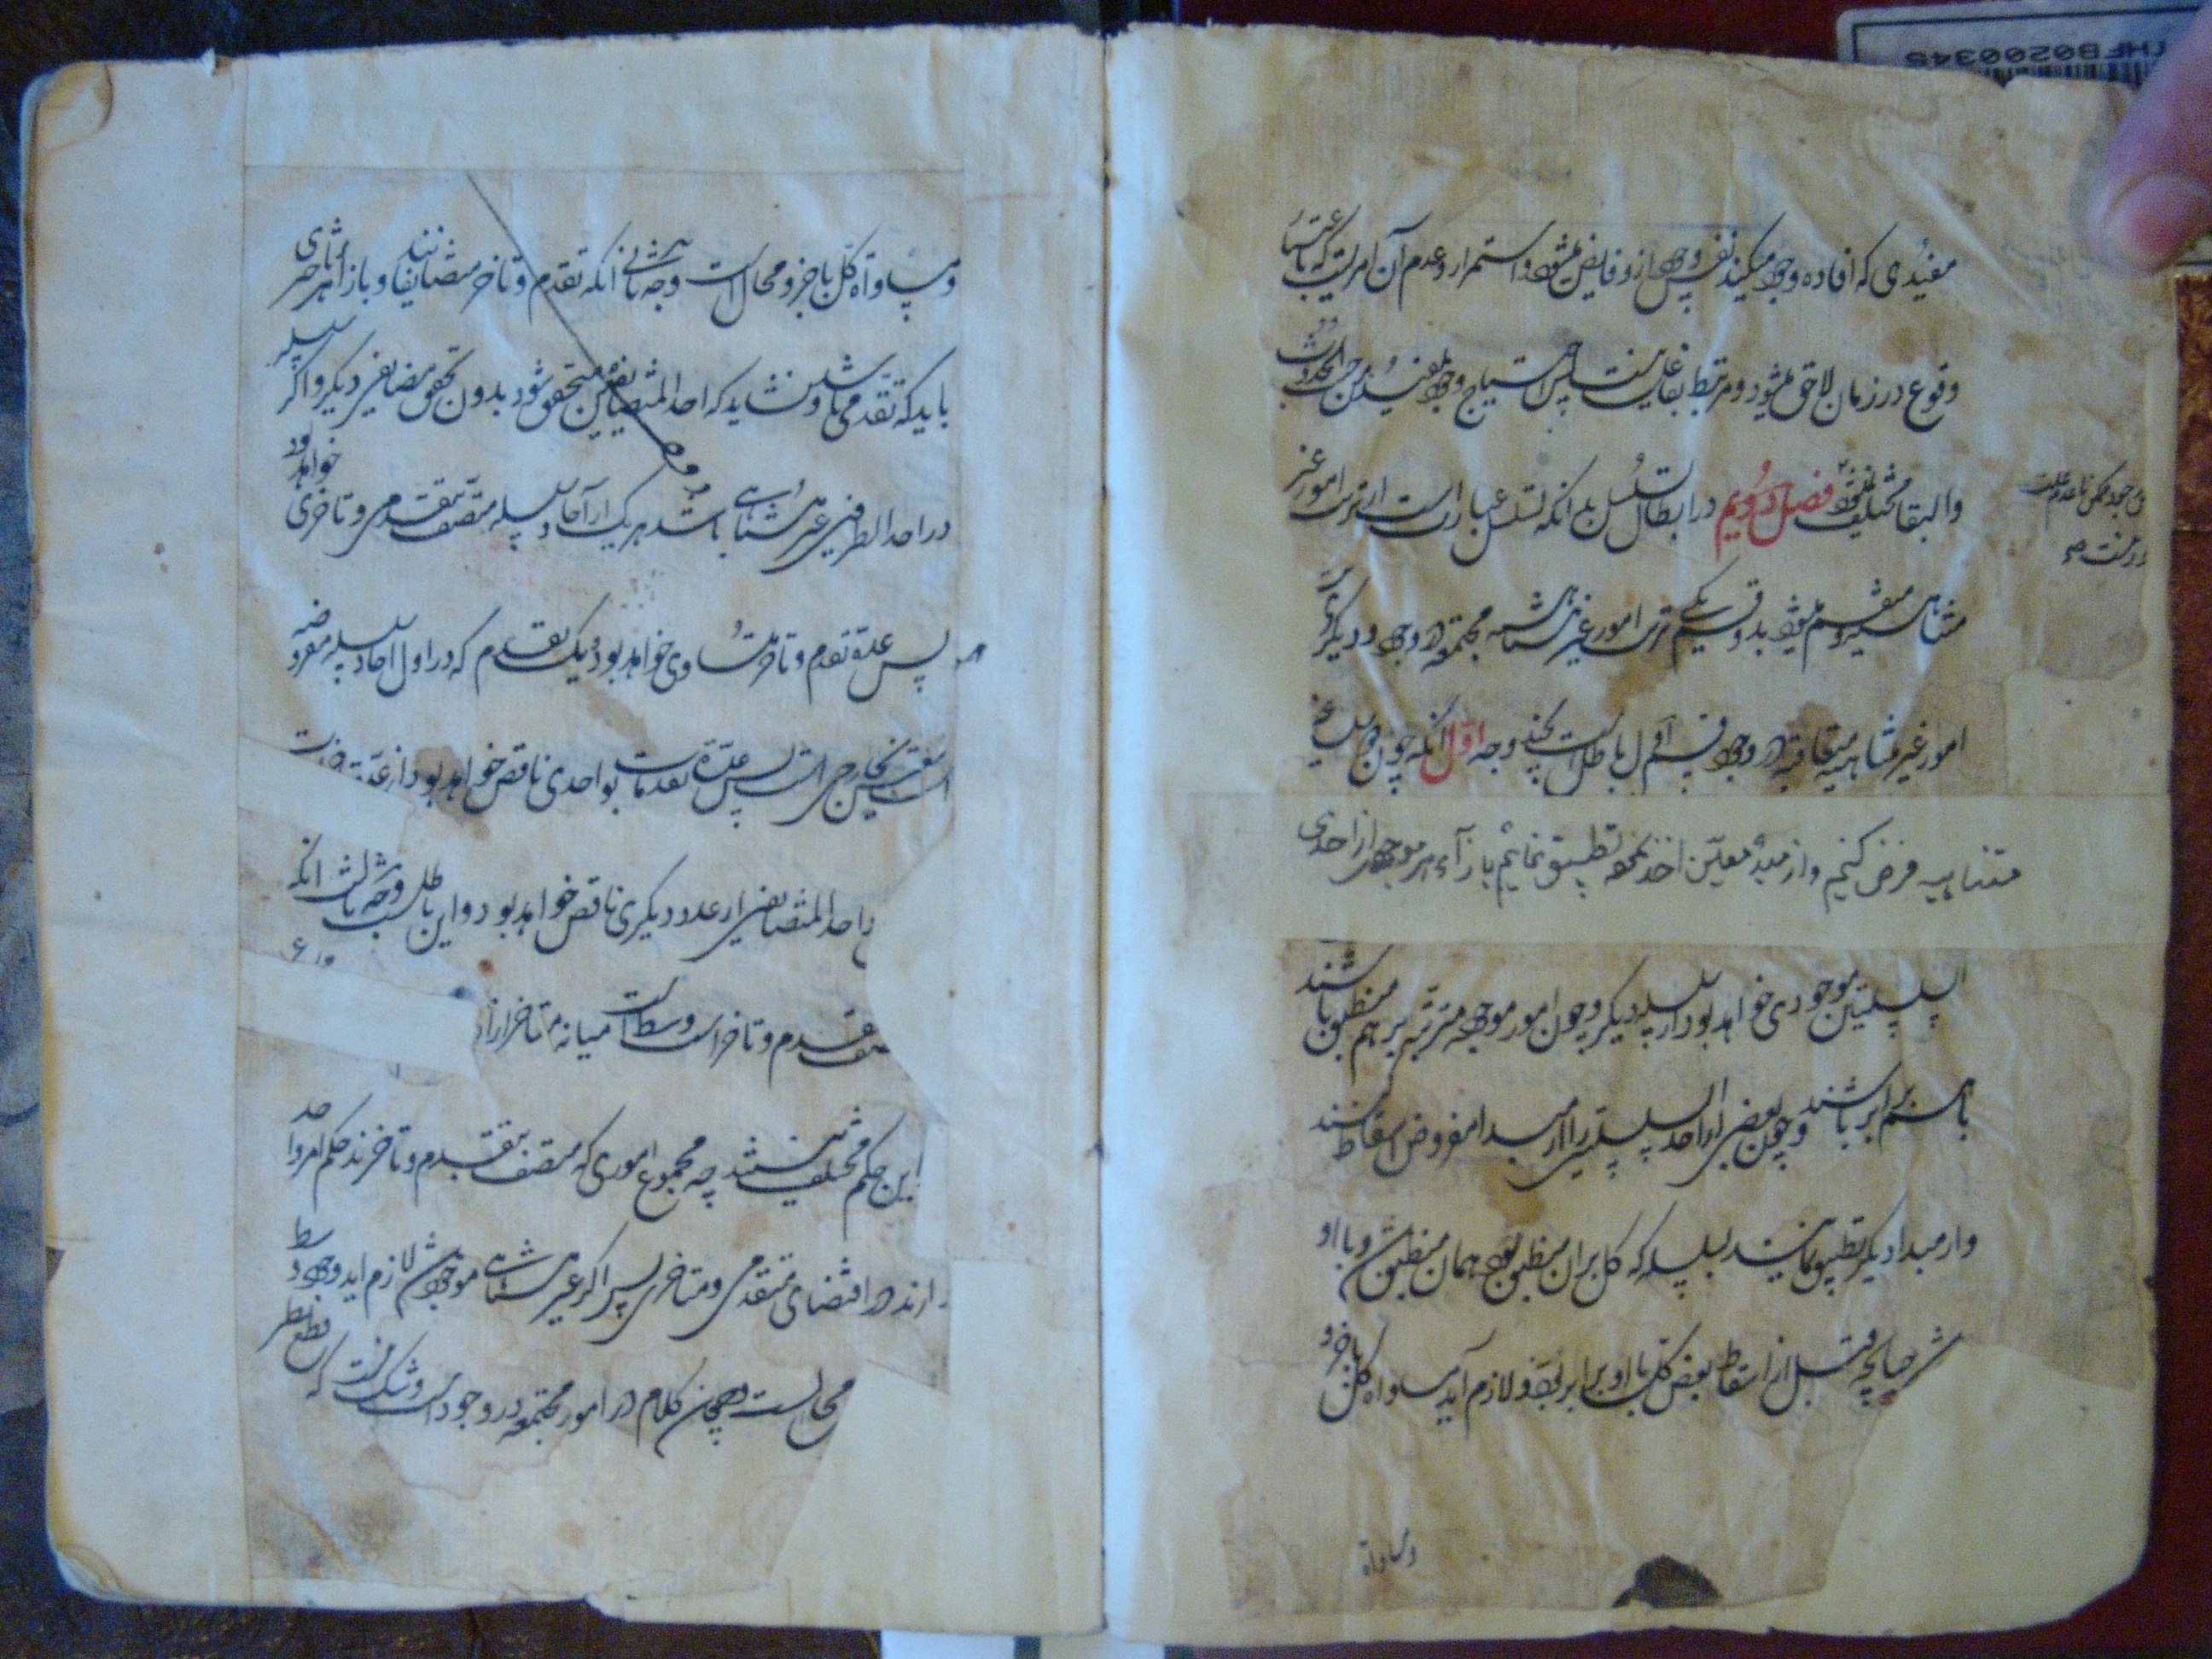 مفیدی که افاده وجود میکند نفس وجود ازو فایض میشود و استمرار و عدم آن امریست که باعتبار
وقوع در زمان لاحق میشود و مرتبط بفاعل نیست پس احتیاج وجود بمفید من حیث الحدوث
والبقا مختلف نمیشود فصل دویم در ابطال تسلسل بدانکه تسلسل عبارتست از ترتب امور غیر
متناهیه و منقسم میشود بدو قسم یکی ترتب امور غیر متناهیه مجتمعه در وجود و دیگر
امور غیر متناهیه متعاقبه در وجود قسم اول باطل است بچند وجه اول انکه چون دو سلسله غیر
متناهیه فرض کنیم و از مبدء معین اخذ نموده تطبیق نمایم بازآء هر موجودی از احدی
السلسلتین موجودی خواهد بود از سلسله دیگر و چون امور موجوده مترتبه بر هم منطبق باشند
با هم برابر باشند و چون بعضی از احد السلسلتین را از مبدا مفروض اسقاط کنند
و از مبدا دیگر تطبیق نمایند بسلسله که کل بران منطبق بود همان منطبق شود و با او
چنانچه قبل از اسقاط بعض کل با او برابر بود و لازم آید مساواه کل با جزو
و مساواة
و مساواة کل با جزو محال است وجه ثانی انکه تقدم و تاخر متضایفانند و بازاء هر تاخری
باید که تقدمی باشد و نشاید که احد المتضایفین متحقق شود بدون تحقق مضایف دیگر و اگر سلسله
در احد الطرفین غیر متناهی باشد هر یک از آحاد سلسله متصف بتقدمی و تاخری خواهد بود
پس عدة تقدم و تاخر متساوی خواهد بود و یک تقدم که در اول احاد سلسله مفروضه
است پس عدة تقدمات بواحدی ناقص خواهد بود از عدة
احد المتضایفین از عدد دیگری ناقص خواهد بود و این باطل است وجه ثالث انکه
تقدم و تاخر است وسط است میانه متاخر از
این حکم مختلف نمیشد چه مجموع اموری که متصف بتقدم و تاخرند حکم امر واحد
دارند در اقتضای متقدمی و متاخری پس اگر غیر متناهی موجود شود لازم اید وجود وسط
محالست و همچنان کلام در امور مجتمعه در وجود است و شک نیست که قطع نظر